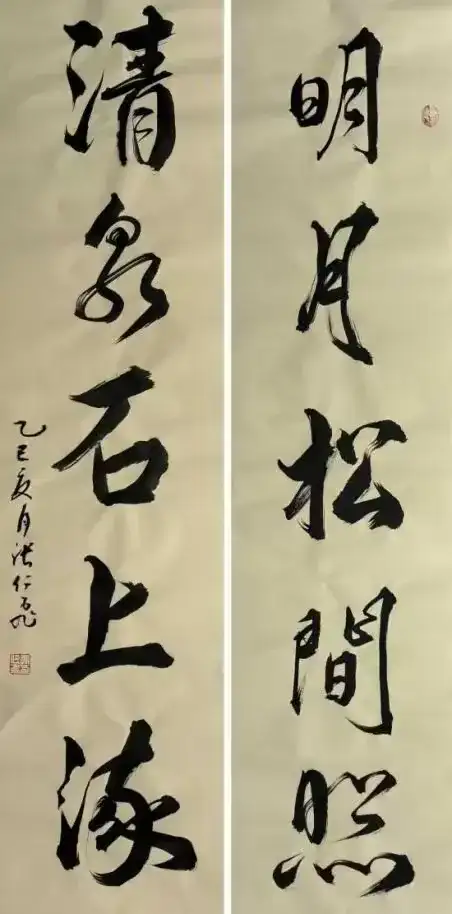 明月松間照
清泉石上流
乙巳夏月張仁